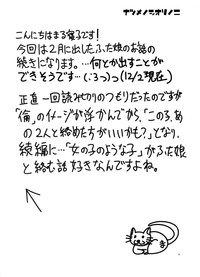 ナツメノミオリノニ
こんにちはまる寝子です!
今回は2月に出したふた娘のお話の
続きになります。…何とか出すことが
できそうです…(:3っ)っ(12/2現在)
正直一回読み切りのつもりだったのですが
「倫」のイメージが浮かんでから、「この子、あ
の2人と絡めた方がいいかも?」となり、
続編に…「女の子のような子」がふた娘
と絡む話 好きなんですよね。